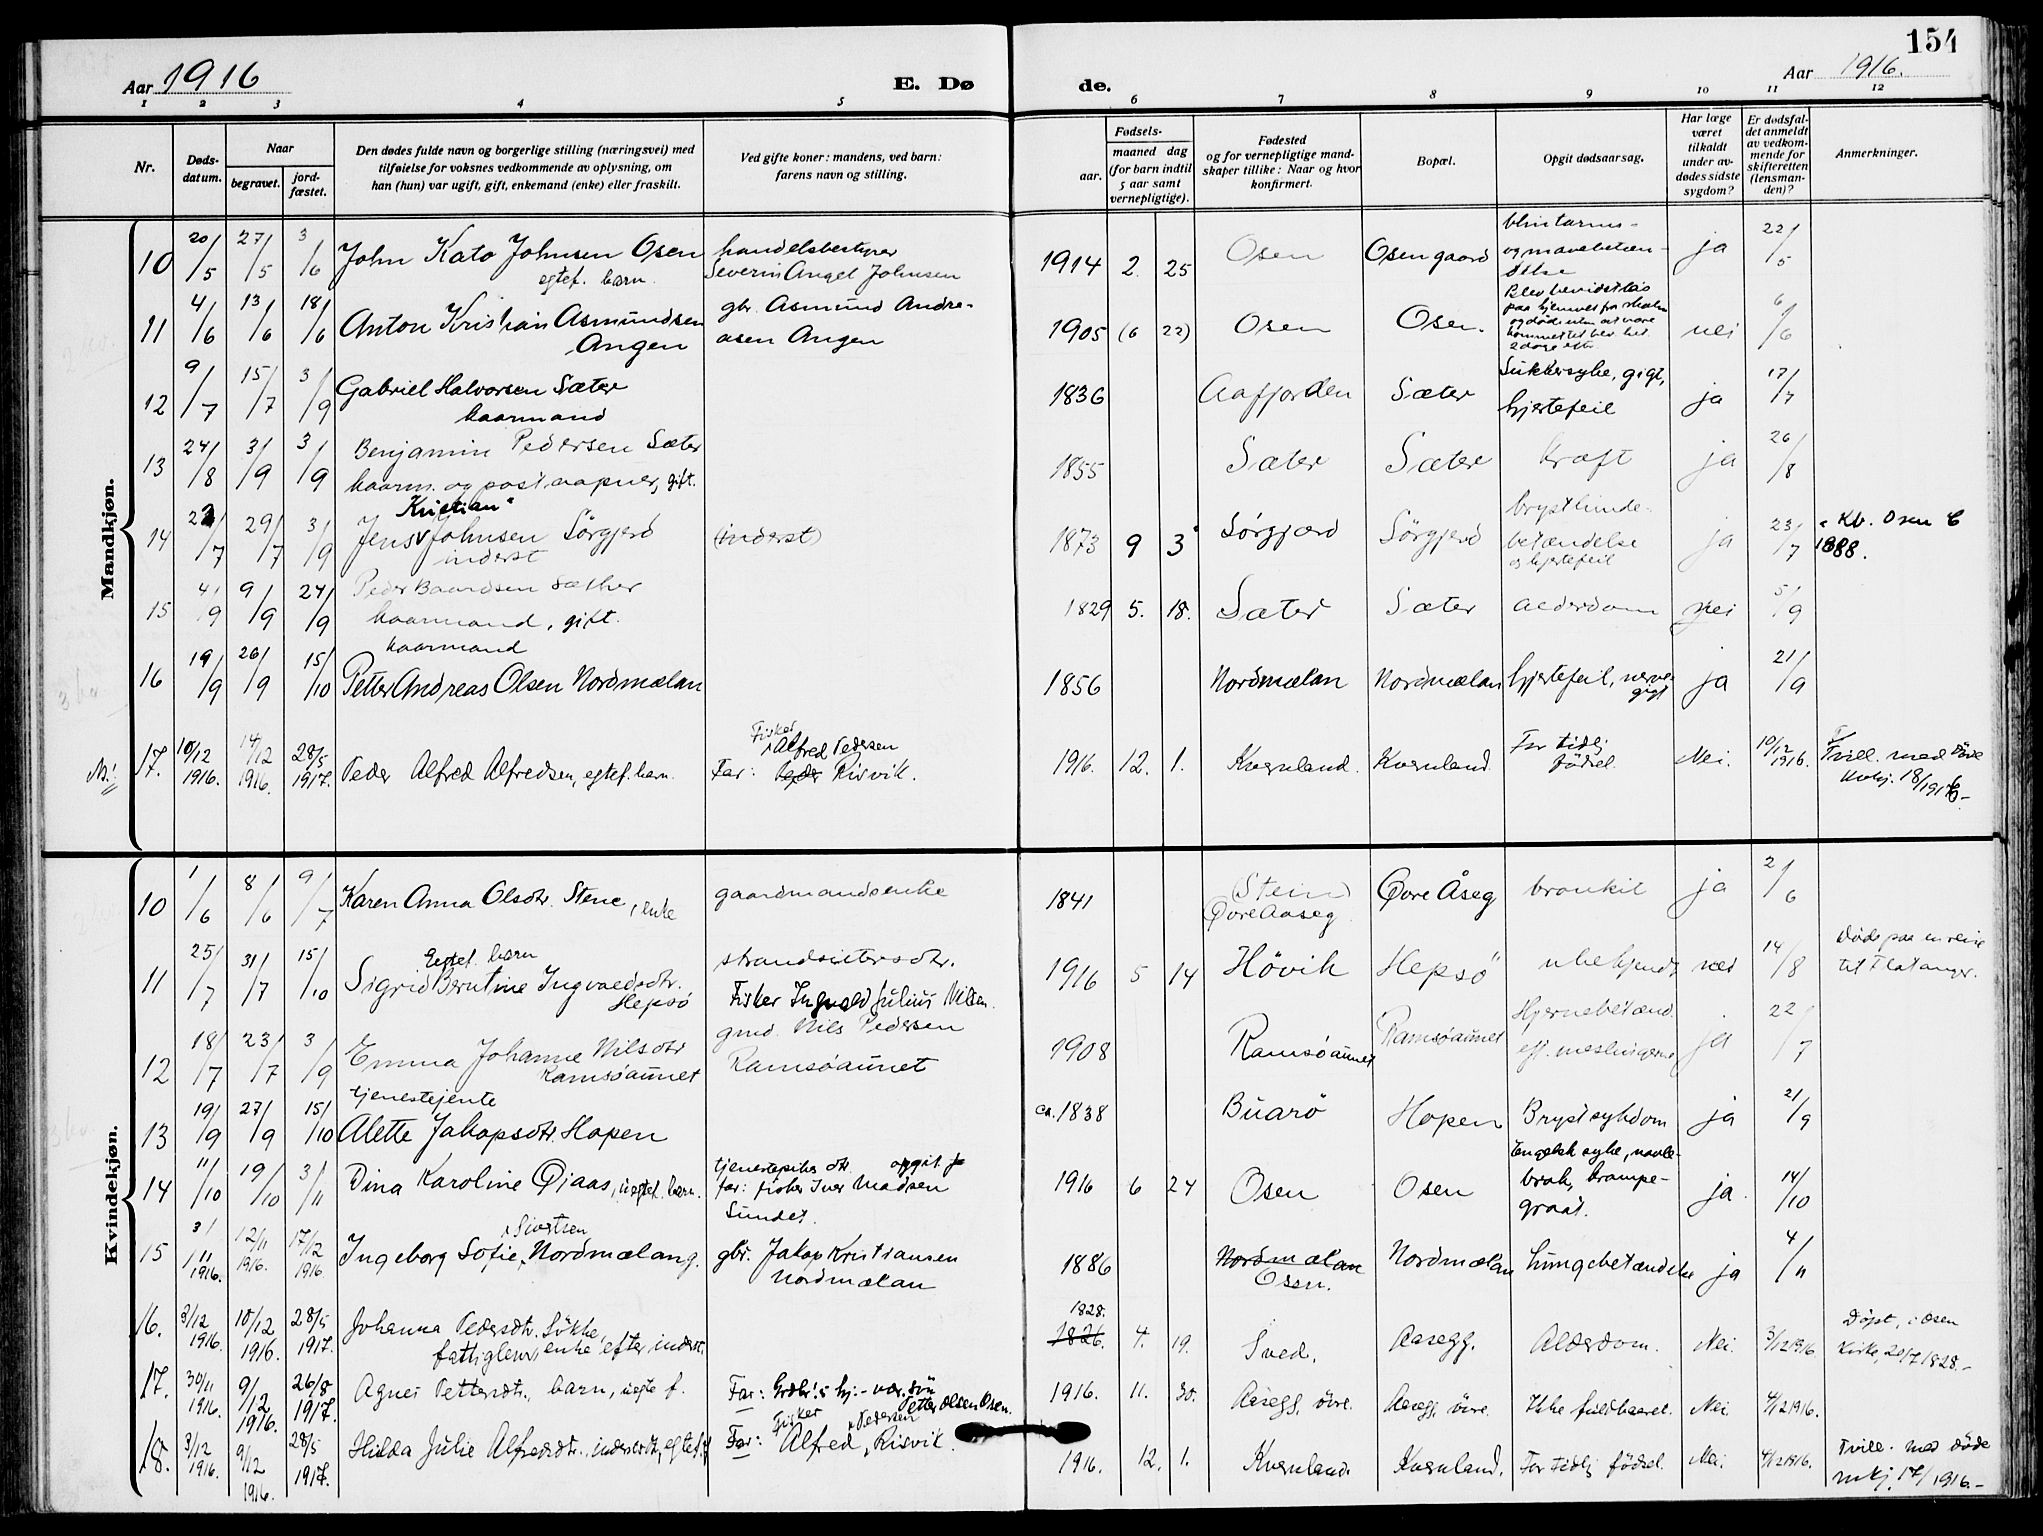 154
Aar 1916
E. Dø
de.
Aar 1916.
1 2 3 4 5 6 7 8 9 10 11 12
Nr.
Døds-
datum.
Naar
begravet.
jord-
fæstet.
Den dødes fulde navn og borgerlige stilling (næringsvei) med
tilføielse for voksnes vedkommende av oplysning, om
han (hun) var ugift, gift, enkemand (enke) eller fraskilt.
Ved gifte koner: mandens, ved barn:
farens navn og stilling.
Fødsels-
aar.
maaned dag
(for barn indtil
5 aar samt
vernepligtige).
Fødested
og for vernepligtige mand-
skaper tillike: Naar og hvor
konfirmert.
Bopæl.
Opgit dødsaarsag.
Har læge
været
tilkaldt
under av-
dødes sidste
sygdom?
Er dødsfal-
det anmeldt
av vedkom-
mende for
skifteretten
(lensman-
den)?
Anmerkninger.
Mandkjøn.
10 20/5 27/5 3/6 John Kato Johnsen Osen handelsbestyrer 1914 2. 25 Osen Osen gaard blintarms- ja 22/5
egtef. barn. Severin Angel Johnsen og mavebetæn-
delse
11 4/6 13/6 18/6 Anton Kristian Asmundsen gbr. Asmund Andre- 1905 (6 22) Osen Osen. Blev bevidstløs nei 6/6
Angen asen Angen paa hjemvei fra skolen
og døde uten at være
kommet til bev. het
2 dage eft.
12 9/7 15/7 3/9 Gabriel Halvorsen Sæter 1836 Aafjorden Sæter Sukkersyke, gigt, ja 17/7
kaarmand hjertefeil
13 24/8 3/9 3/9 Benjamin Pedersen Sæter 1855 Sæter Sæter kræft ja 26/8
kaarm. og postaapner, gift.
Kristian
14 22/7 29/7 3/9 Jens Johnsen Sörgjerd (inderst) 1873 9 3 Sörgjerd Sörgjerd brysthinde- ja 23/7 Kb. Osen C
inderst betændelse 1888.
og hjertefeil
15 4/9 9/9 24/9 Peder Baardsen Sæther 1829 5. 18. Sæter Sæter alderdom nei 5/9
kaarmand, gift.
kaarmand
16 19/9 26/9 15/10 Petter Andreas Olsen Nordmælan 1856 Nordmælan Nordmælan hjertefeil, nerve- ja 21/9
gigt
Fisker
Alfred Pedersen
17. 10/12 1916. 14/12 1916. 28/5 1917. Peder Alfred Alfredsen, egtef. barn. Far: Peder Risvik. 1916. 12. 1. Kvernland. Kvernland. For tidlig Nei. 10/12 1916. Tvill. med døde
födsel. kvkj. 18/1916.-
Kvindekjøn.
10 1/6 8/6 9/7 Karen Anna Olsdtr. Stene, enke gaardmandsenke 1841 Stein Övre Åseg bronkit ja 2/6
Övre Aaseg.
Egtef. barn
11 25/7 31/7 15/10 Sigrid Berntine Ingvaldsdtr. strandsitters dtr. 1916 5 14 Hövik Hepsö ubekjendt nei 14/8 Døde paa en reise
Hepsö Fisker Ingvald Julius Nilsen. til Flatanger.
12 18/7 23/7 3/9 Emma Johanne Nilsdtr gmd. Nils Pedersen 1908 Ramsöaunet Ramsöaunet Hjernebetænd. ja 22/7
Ramsöaunet Ramsöaunet eft. meslingerne
tjenestejente
13 19/9 27/9 15/10 Alette Jakopsdtr. Hopen ca. 1838 Buarö Hopen Brystsykdom ja 21/9
14 11/10 19/10 3/11 Dina Karoline Öiaas, uegtef. barn. tjenestepikes dtr. opgit 1916 6 24 Osen Osen Engelsk syke, navle- ja 14/10
far: fisker Iver Madsen brok, krampe-
Sundet. graat.
Sivertsen
15 3/11 1916. 12/11 1916. 17/12 1916 Ingeborg Sofie Nordmælan g. gbr. Jakop Kristiansen 1886 Nordmælan Nordmælan lungebetændelse ja 4/11
Nordmælan Osen.
1828.
16. 3/12 1916. 10/12 1916. 28/5 1917. Johanna Pedersdtr. Sökke, 1826. 4. 19. Sved. Aasegg. Alderdom. Nei. 3/12 1916. Döpt, i Osen
fattiglem, enke efter inderst. Kirke, 20/7 1828.-
17. 30/11 1916. 9/12 1916. 26/8 1917. Agnes Pettersdtr., barn, uegte f. Far: 1916. 11. 30. Aasegg, övre. Aasegg, övre. Ikke fuldbaaret. Nei. 4/12 1916.
Petter Olsen Osen.
Fisker Pedersen
18. 3/12 1916. 9/12 1916. 28/5 1917. Hilda Julie Alfredsdtr., egtef. Far: Alfred, Risvik. 1916. 12. 1. Kvernland. Kvernland. For tidlig födsel. Nei. 4/12 1916. Tvill. med døde
mkj. 17/1916.-